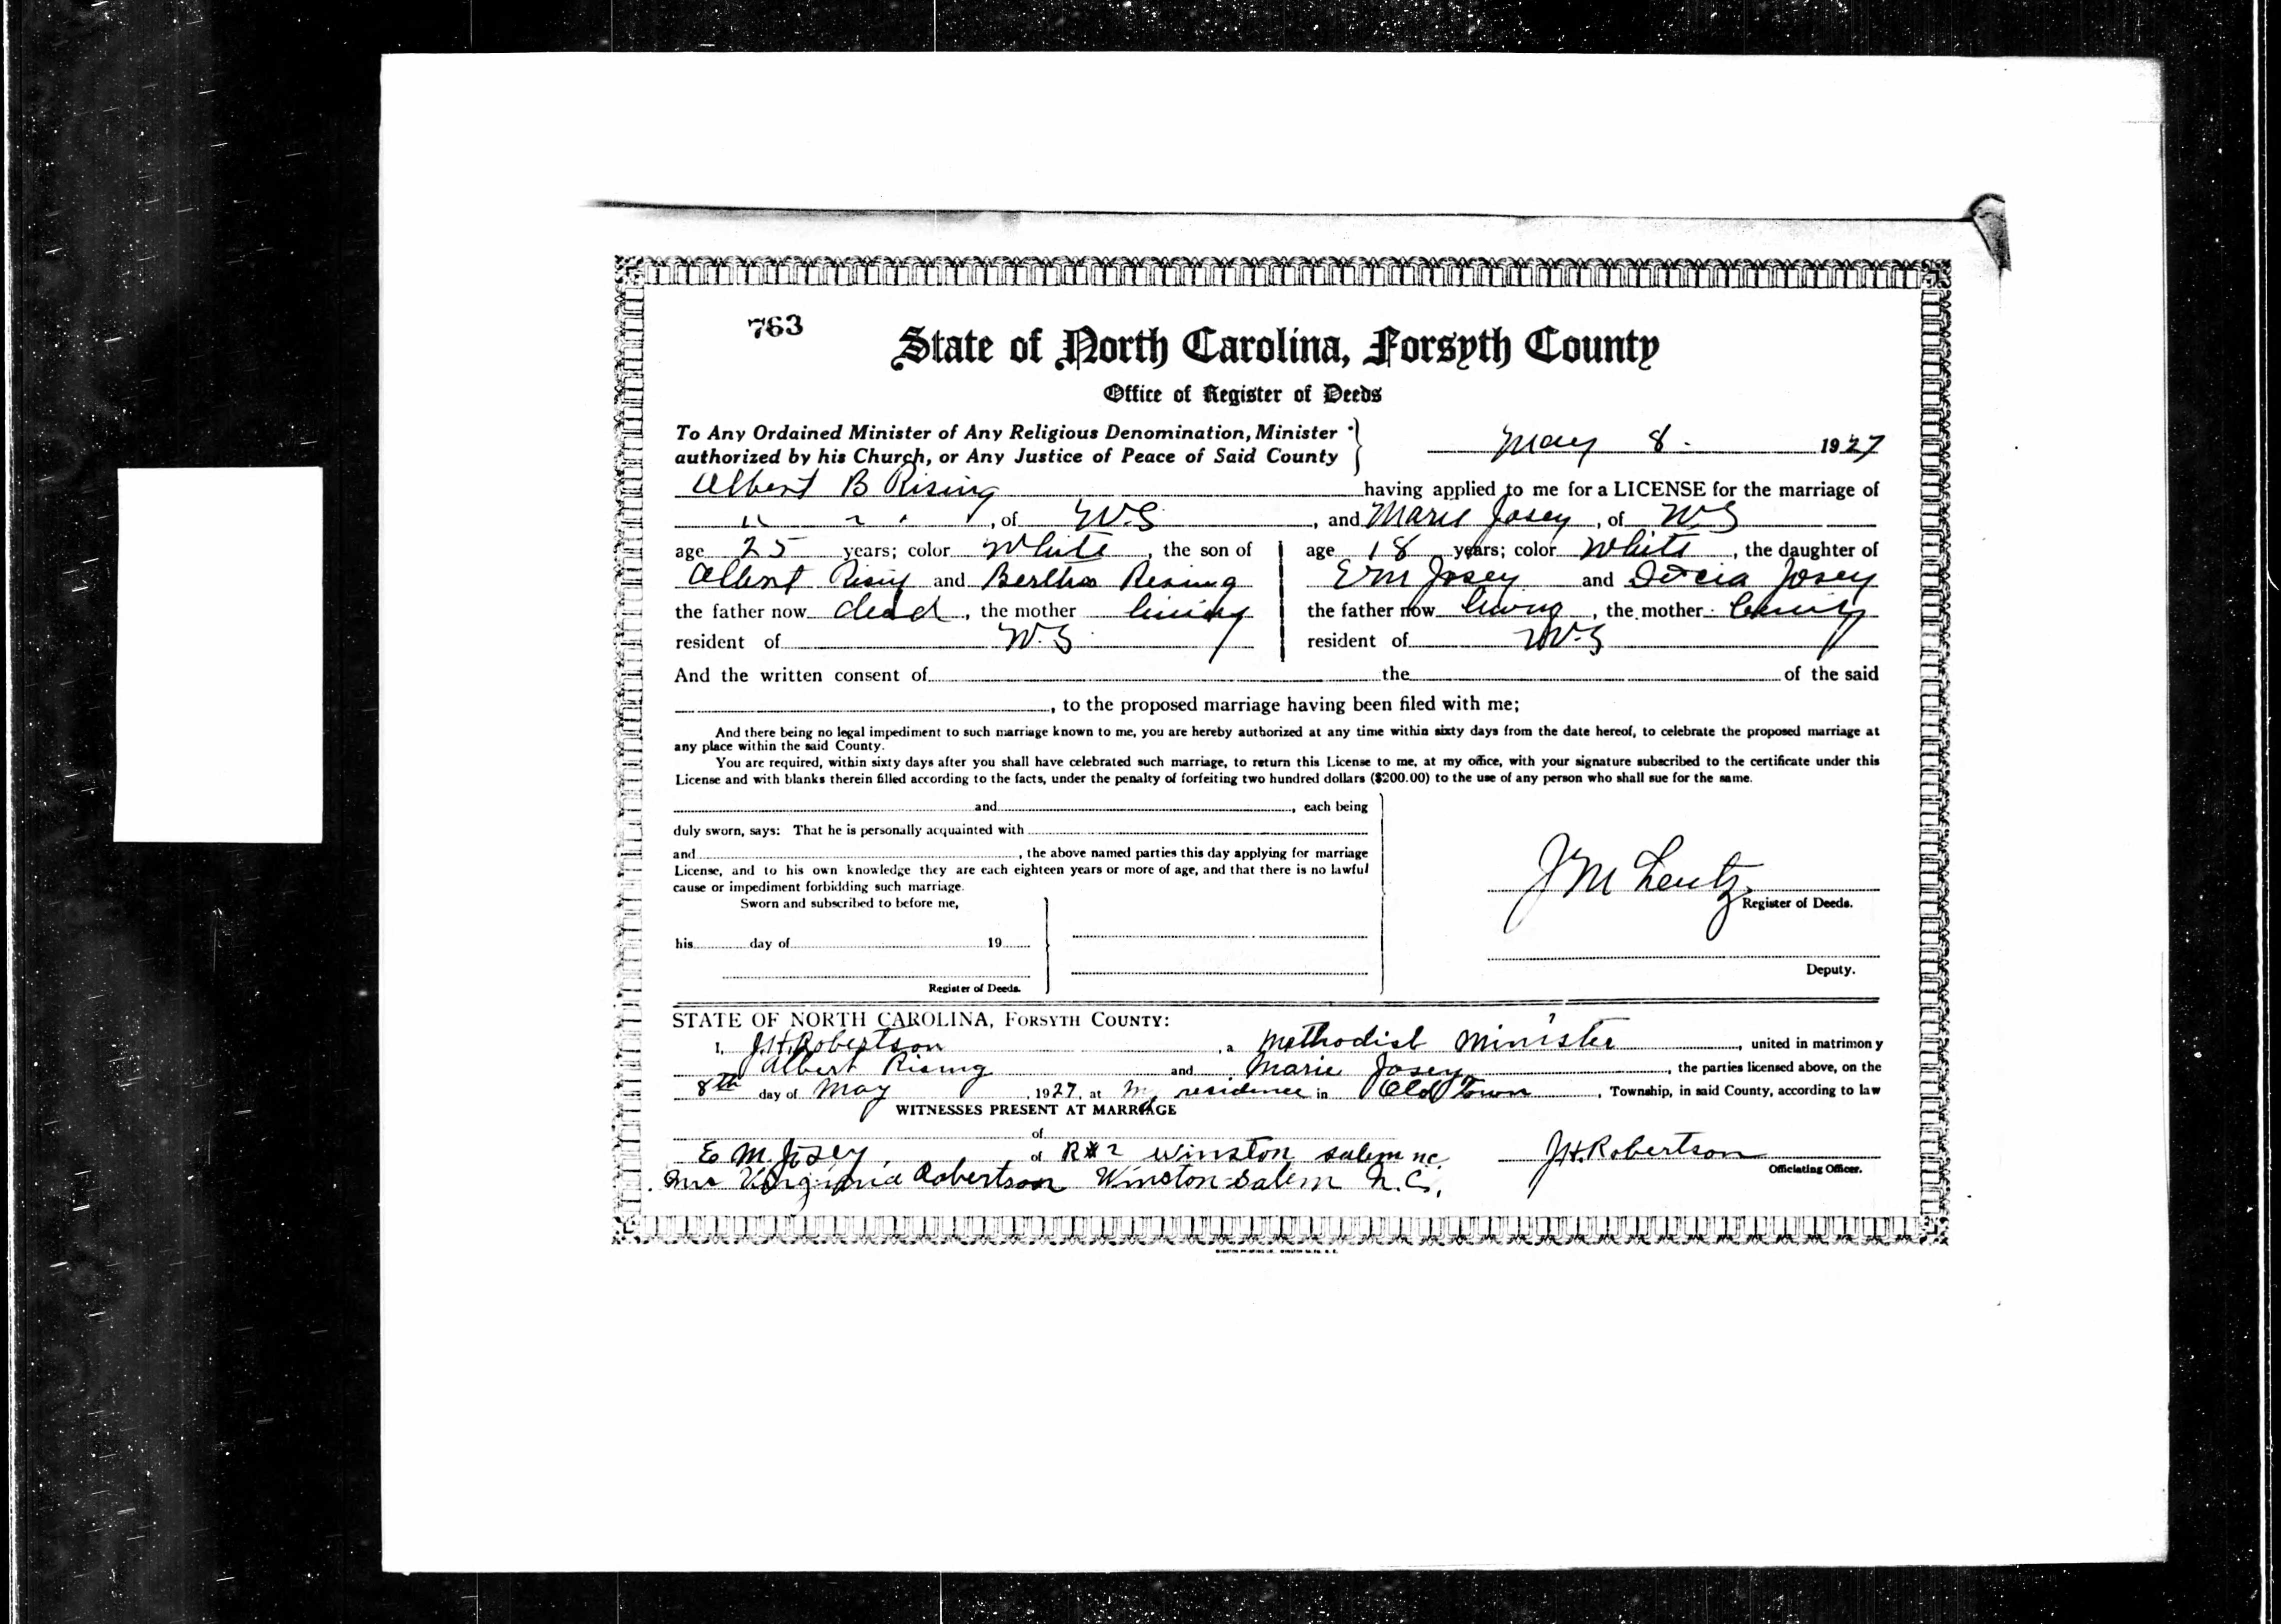 763
State of North Carolina, Forsyth County
Office of Register of Deeds
To Any Ordained Minister of Any Religious Denomination, Minister
authorized by his Church, or Any Justice of Peace of Said County
May 8. 1927
Albert B Rising having applied to me for a LICENSE for the marriage of
" " " , of W.S , and Marie Josey , of W.S
age 25 years; color White , the son of
Albert Rising and Bertha Rising
the father now dead , the mother living
resident of W.S.
age 18 years; color White , the daughter of
E M Josey and Josey
the father now living , the mother living
resident of W.S
And the written consent of the of the said
, to the proposed marriage having been filed with me;
And there being no legal impediment to such marriage known to me, you are hereby authorized at any time within sixty days from the date hereof, to celebrate the proposed marriage at
any place within the said County.
You are required, within sixty days after you shall have celebrated such marriage, to return this License to me, at my office, with your signature subscribed to the certificate under this
License and with blanks therein filled according to the facts, under the penalty of forfeiting two hundred dollars ($200.00) to the use of any person who shall sue for the same.
and , each being
duly sworn, says: That he is personally acquainted with
and , the above named parties this day applying for marriage
License, and to his own knowledge they are each eighteen years or more of age, and that there is no lawful
cause or impediment forbidding such marriage.
Sworn and subscribed to before me,
his day of 19
Register of Deeds.
J M Lentz.
Register of Deeds.
Deputy.
STATE OF NORTH CAROLINA, FORSYTH COUNTY:
I, J.H.Robertson , a Methodist Minister , united in matrimony
Albert Rising and Marie Josey , the parties licensed above, on the
8th day of May , 1927, at my residence in Old Town , Township, in said County, according to law
WITNESSES PRESENT AT MARRIAGE
of
E M. Josey, of R#2 Winston Salem nc.
J.H.Robertson
Officiating Officer.
Mrs Virginia Robertson Winston-Salem N.C.,